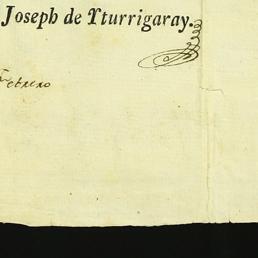 Joseph de Yturrigaray.
Febrero